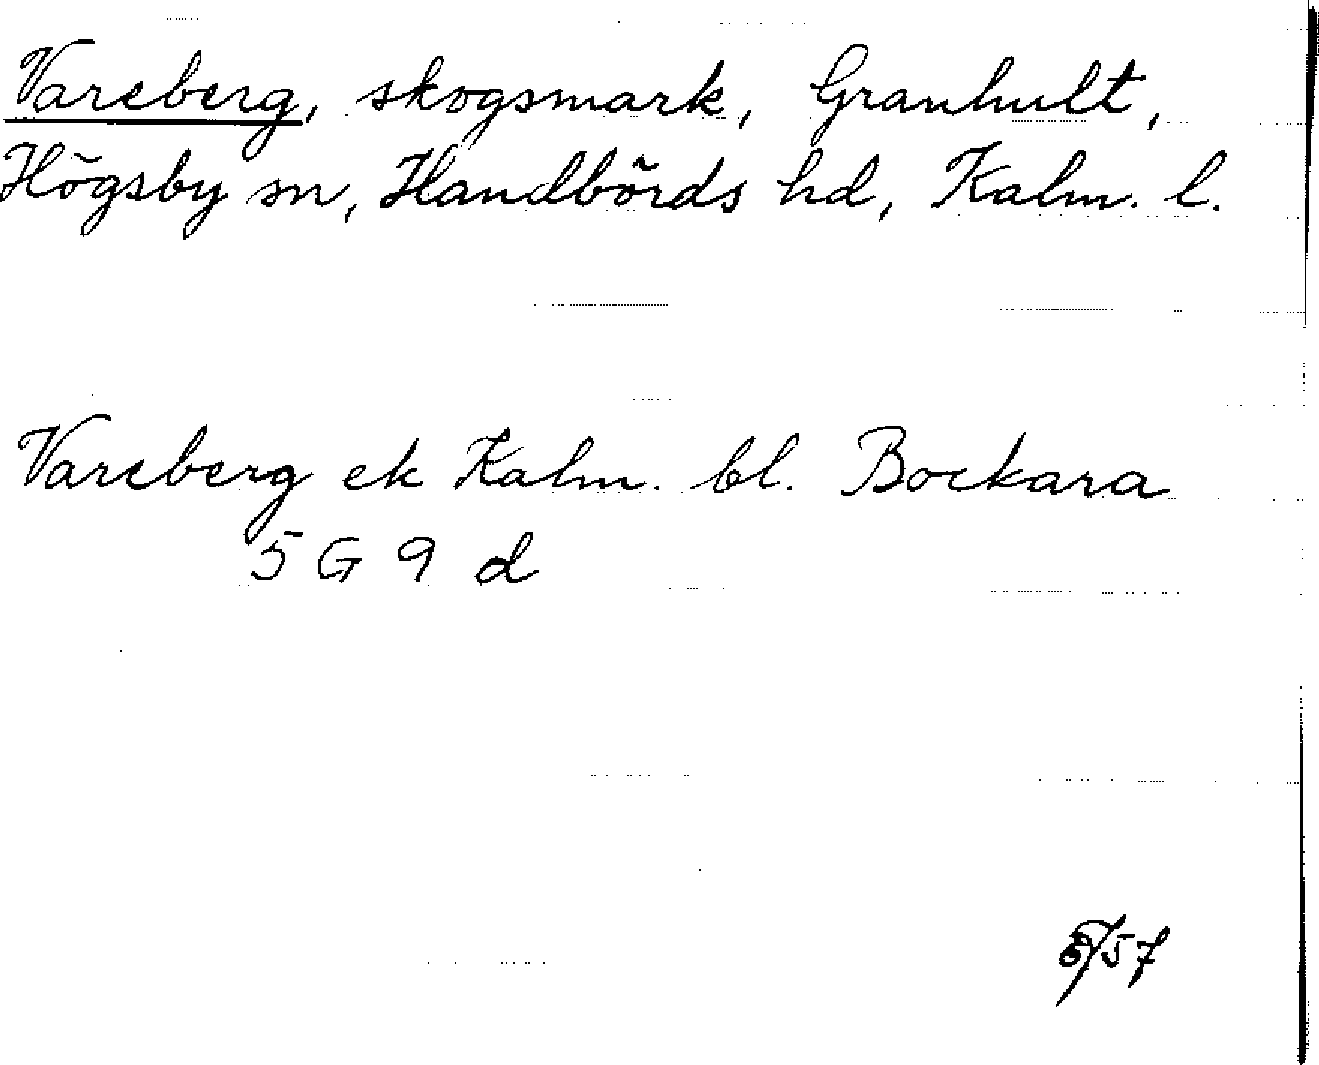 Vareberg, skogsmark, Granhult,
Högsby sn, Handbörds hd, Kalm. l.
Vareberg ek Kalm. bl. Bockara
5 G 9 d
/57